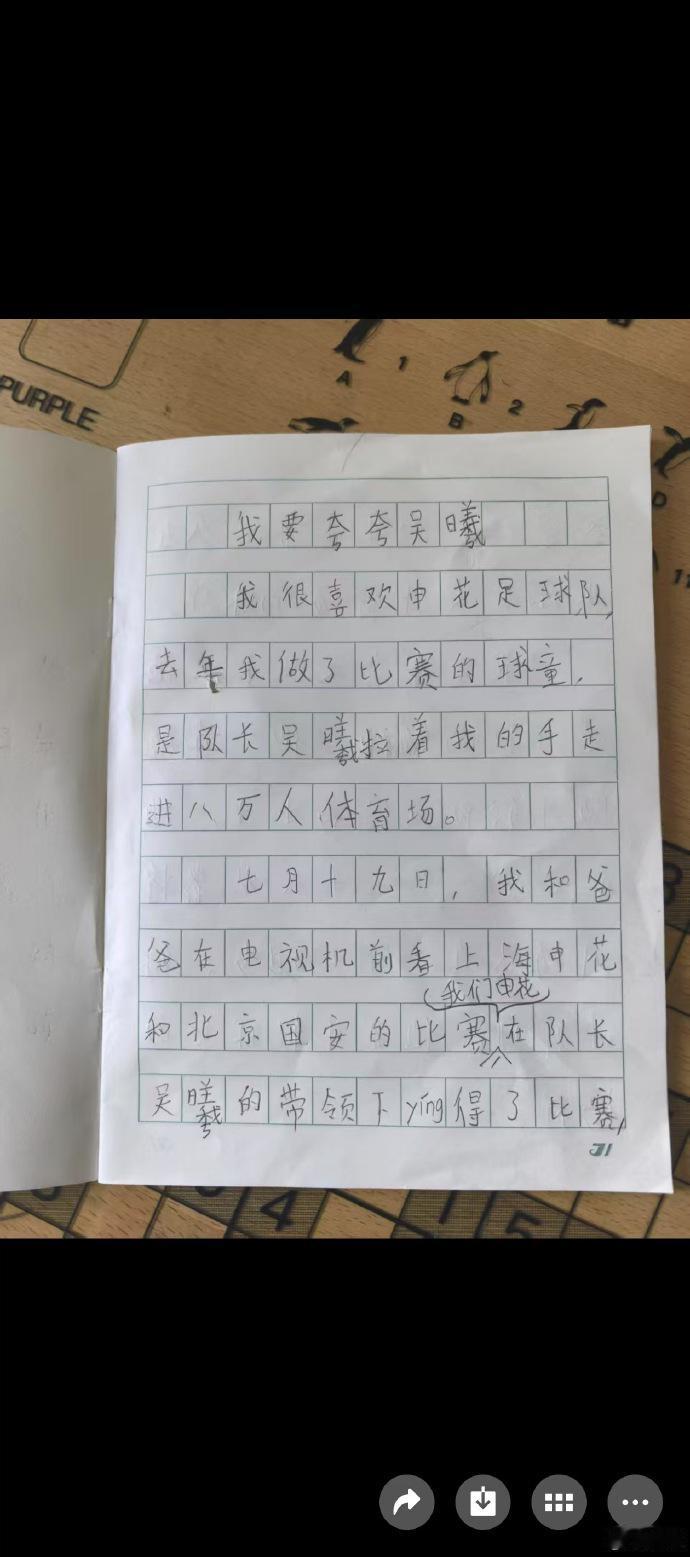 PURPLE
A
1
B
2
D
11
我要夸夸吴曦
我很喜欢申花足球队，
去年我做了比赛的球童，
是队长吴曦拉着我的手走
进八万人体育场。
七月十九日，我和爸
爸在电视机前看上海申花
我们申花
和北京国安的比赛在队长
吴曦的带领下yíng得了比赛，
4
5